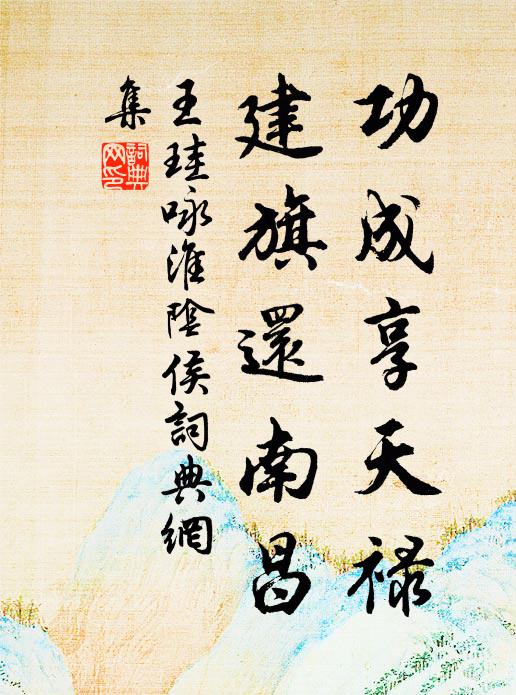 功成享天禄
建旗還南昌
王珪咏淮陰侯詞典網
集
詞典
网印